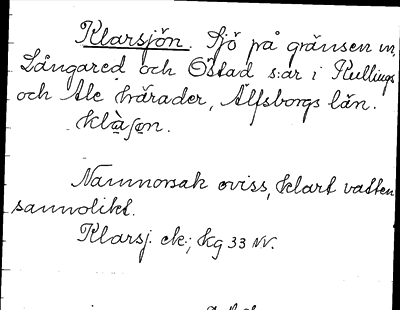 Klarsjön. Sjö på gränsen m.
Långared och Östad s:ar i Kullings
och Ale härader, Älfsborgs län.
klàʃo̤n.
Namnorsak oviss, klart vatten
sannolikt.
Klarsj. ek.; kg 33 NV.